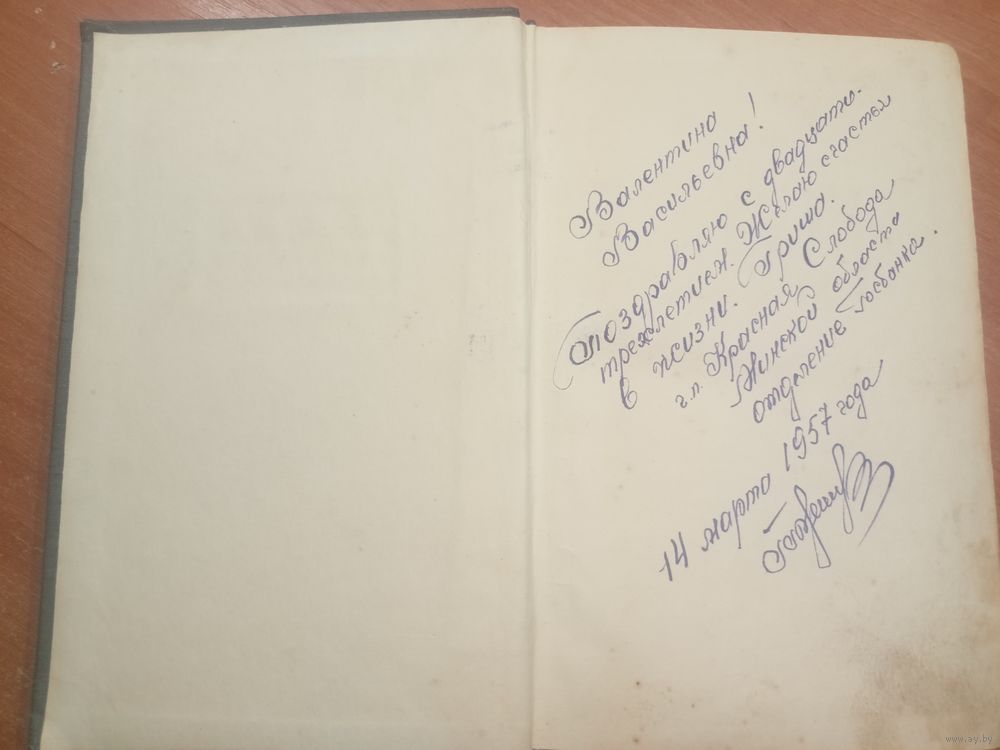 Валентина
Васильевна!
Поздравляю с двадцати-
трехлетием. Желаю счастья
в жизни. Гриша.
г.п. Красная Слобода
Минской области
отделение Госбанка.
14 марта 1957 года
www.ay.by